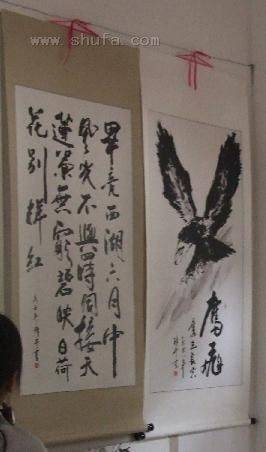 www.shufa.com
畢竟西湖六月中
風光不與四時同接天
蓮葉無窮碧映日荷
花别樣紅
鷹飛